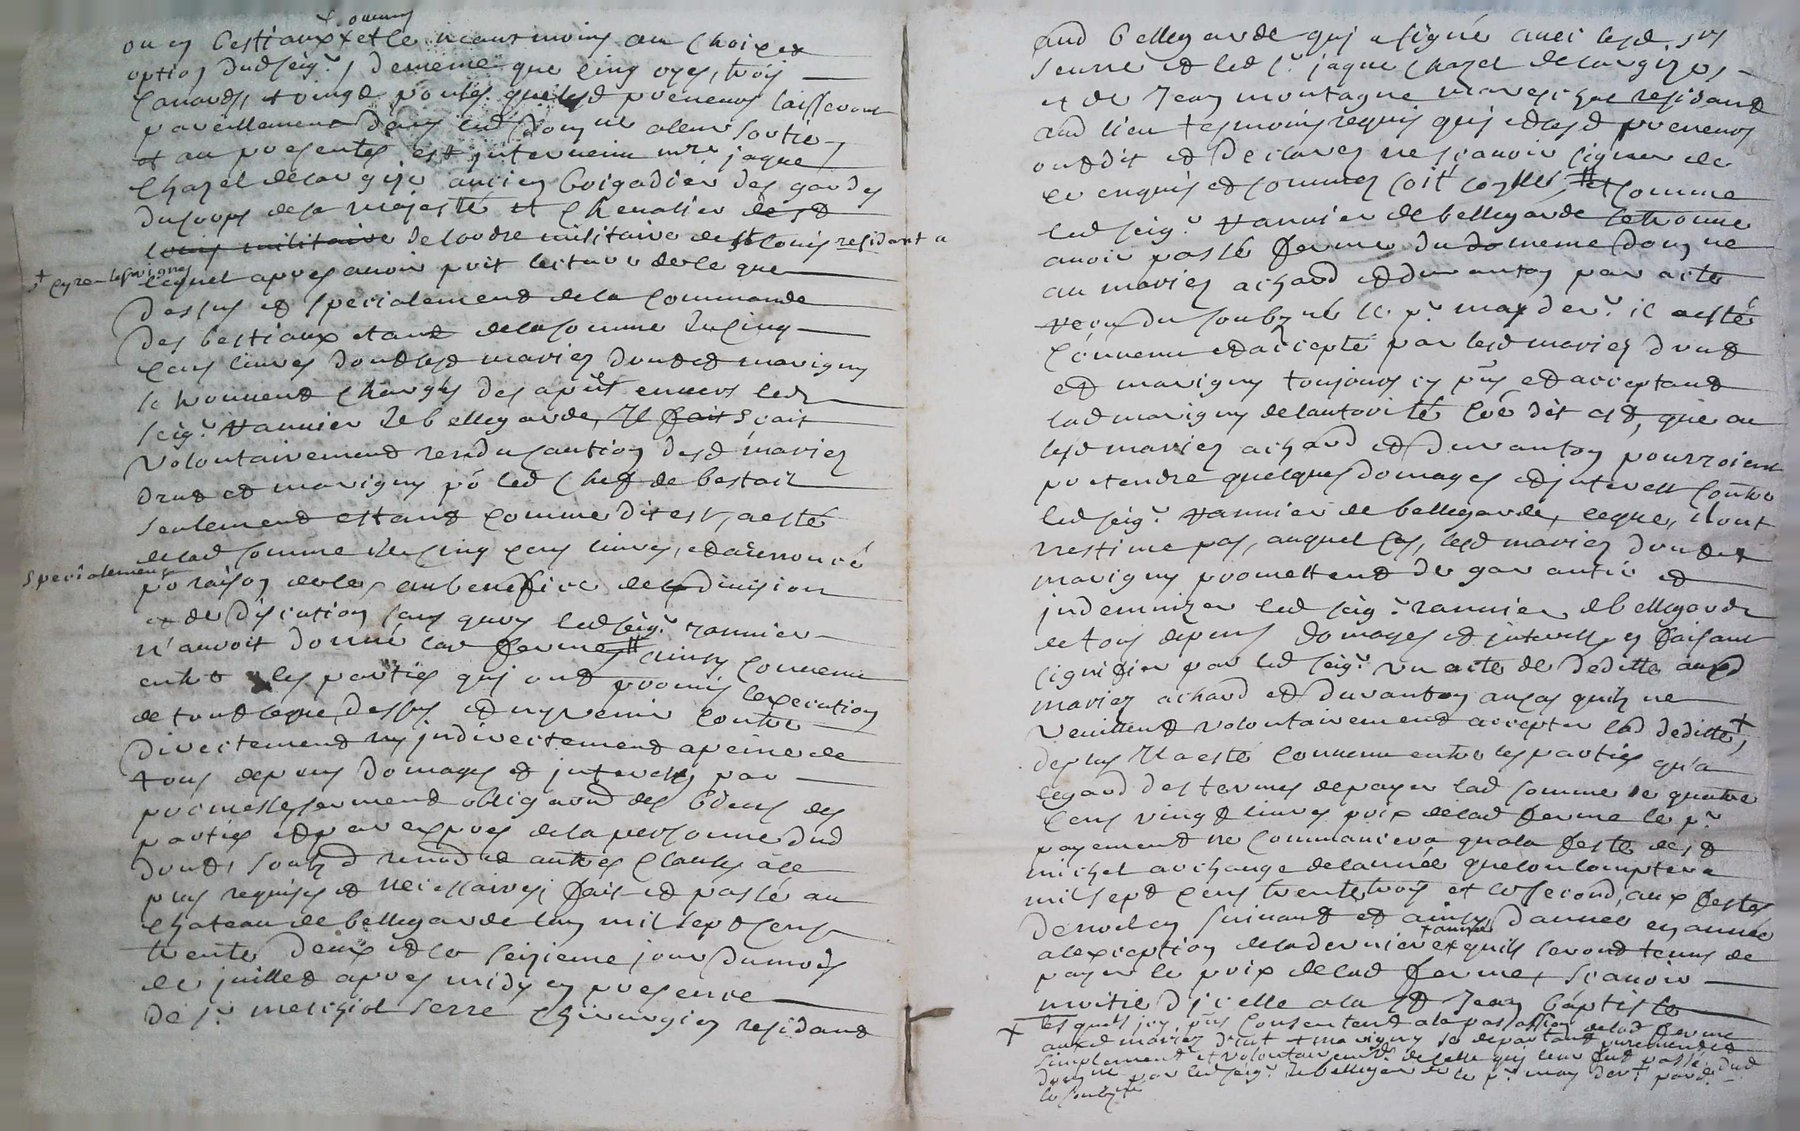 ou en bestiaux et ce neantmoins au choix et
option dud seigr, de meme que cinq oyes, trois
canards, et vingt poules que lesd preneurs laisseront
pareillement dans led domne a leur sortie,
et au presentes est intervenu mre jaque
Chazel decargize ancien brigadier des gardes
du corps de sa majesté et chevalier de st
louis militaire de lordre militaire de st louis residant a
lequel apres avoir prit lecture de le que
dessus et specialement de la commande
des bestiaux etant de la somme de cinq
cens livres dont lesd mariez drut et marigny
se trouvent chargés des apnt envers led
seigr vannier de bellegarde, Il fait s'cait
volontairement rendu caution desd mariez
drut et marigny po led chef de bestail
seulement estant comme dit est, aesté
de lad somme de cinq cens livres, et a renoncé
specialement
po raison de le au benefice de division
et de discution sans quoy led seigr vannier
n'auroit donné lad ferme ainsy convenu
entre les parties qui ont promis lexecution
de tout leque dessus et ny venir contre
directement ny indirectement a peine de
tous depens domages et interests par
promesse serment obligaond des biens des
parties et par expres de la personne dud
drut, soubz d renond et autres clauses a le
plus requises et necessaires; fait et passé au
chateau de bellegarde lan mil sept cens
trente deux et le seizieme jour du mois
de juillet apres midy en presence
de sr melchiol serre chirurgien residant
aud bellegarde qui a signé avec lesd srs
serre et led sr jaque chazel decargize,
et de Jean montagne marechal residant
aud lieu tesmoins requis qui et lesd preneurs
ont dit et declarer ne scavoir signer de
ce enquis et sommez soit comme
led seigr vannier de bellegarde se trouve
avoir passé ferme du meme domne
au mariez achard et duranton par acte
receu du soubzné le pr may derr il a esté
convenu et accepté par lesd mariez drut
et marigny toujours cy pns et acceptant
lad marigny de lautorité que dit est, que ou
lesd mariez achard et duranton pourroient
pretendre quelques domages et interest contre
led seigr vannier de bellegarde, ceque, dont
nestime pas, auquel cas, lesd mariez drut et
marigny promettent de garantir et
indemnizer led seigr vannier de bellegarde
de tous depens domages et interests en faisant
signifier par led seigr un acte de deditte aud
mariez achard et duranton au cas quils ne
veuillent volontairement accepter lad deditte,
de plus Il a esté convenu entre les parties qu'a
legard des termes de payer lad somme de quatre
cens vingt livres prix de lad ferme le pr
payement ne commancera qu'a la feste de st
michel archange de lannée que lon comptera
mil sept cens trente trois et le second, aux festes
de noel en suivant et ainsy d'année en année
a lexception de la derniere quils seront tenus de
payer le prix de lad ferme, scavoir
moitié d'icelle a la st Jean baptiste
lesquels jcy pns consentent a la passation de lad ferme
auxd mariez drut et marigny se departant purement et
simplement et volontairement de celle qui leur fut passé dud
domne par led seigr de bellegarde le pr may derr pard
le soubzné